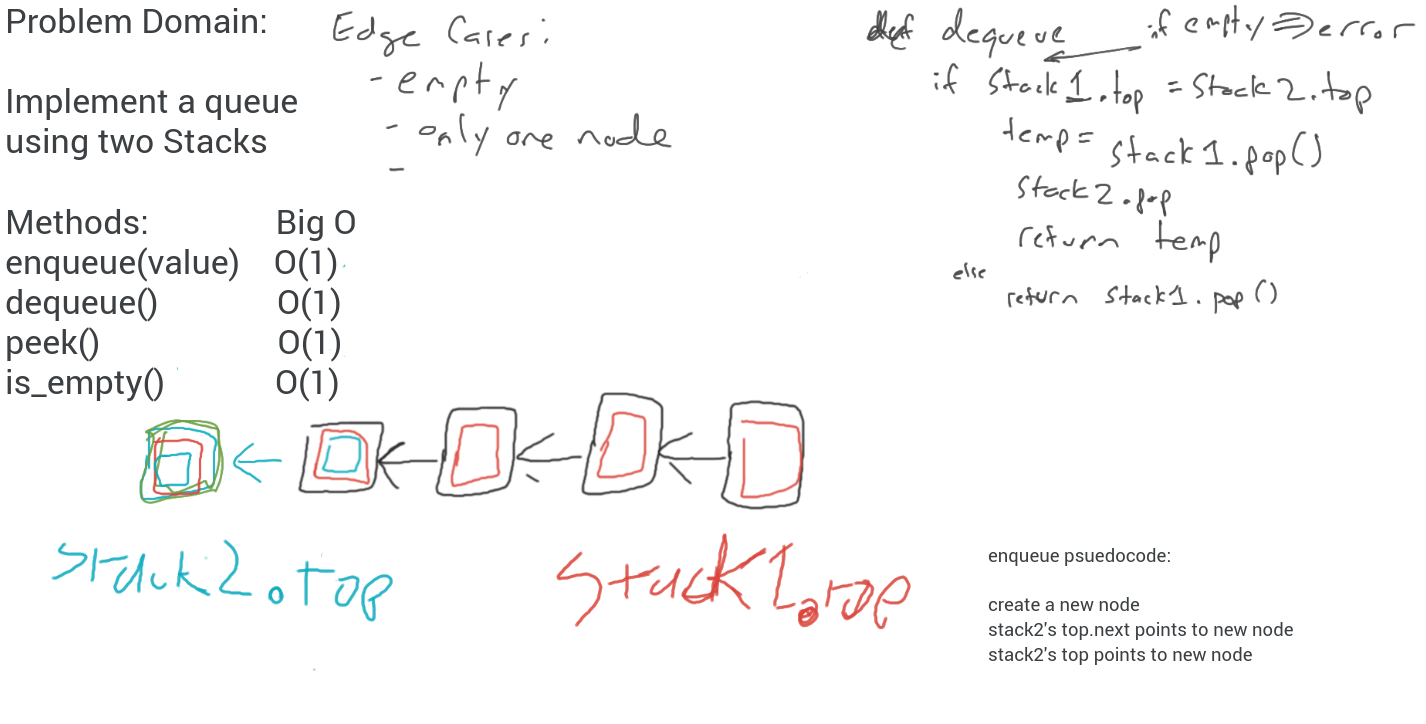 Problem Domain:
Implement a queue
using two Stacks
Edge Cases:
- empty
- only one node
-
Methods: Big O
enqueue(value) O(1)
dequeue() O(1)
peek() O(1)
is_empty() O(1)
def dequeue if empty => error
if Stack1.top = Stack2.top
temp = Stack1.pop()
Stack2.pop
return temp
else
return Stack1.pop()
Stack2.top
Stack1.top
enqueue psuedocode:
create a new node
stack2's top.next points to new node
stack2's top points to new node